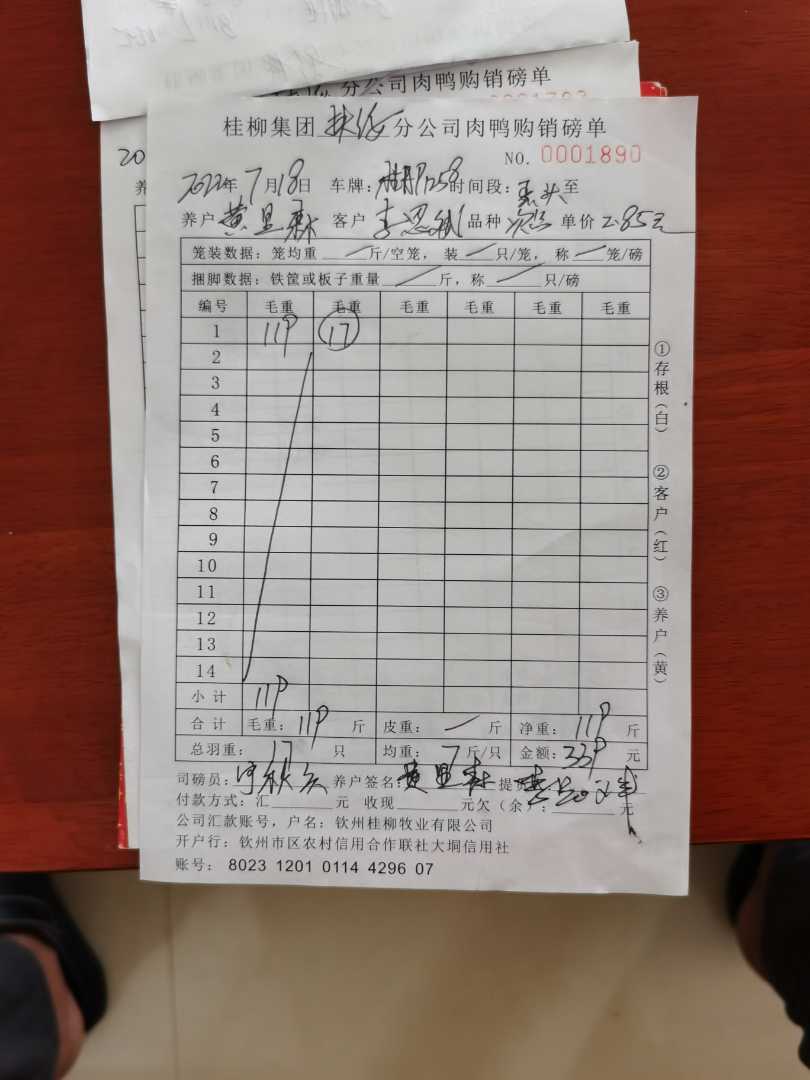 分公司肉鸭购销磅单
桂柳集团 扶绥 分公司肉鸭购销磅单
NO. 0001890
2022年7月18日 车牌: 时间段: 至
养户 黄显森 客户 李恩斌 品种 单价 2.85元
笼装数据: 笼均重 / 斤/空笼, 装 / 只/笼, 称 / 笼/磅
捆脚数据: 铁筐或板子重量 / 斤, 称 / 只/磅
编号 毛重 毛重 毛重 毛重 毛重 毛重
1 119 17
2
3
4
5
6
7
8
9
10
11
12
13
14
小计 119
合计 毛重: 119 斤 皮重: / 斤 净重: 119 斤
总羽重: 17 只 均重: 7 斤/只 金额: 339 元
司磅员: 养户签名: 黄显森 提
付款方式: 汇 元 收现 元欠(余): 元
公司汇款账号, 户名: 钦州桂柳牧业有限公司
开户行: 钦州市区农村信用合作联社大垌信用社
账号: 8023 1201 0114 4296 07
①存根(白) ②客户(红) ③养户(黄)